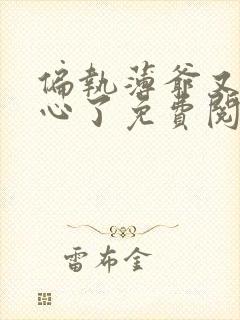 偏執薄爺又
心了免費閱
雷布金